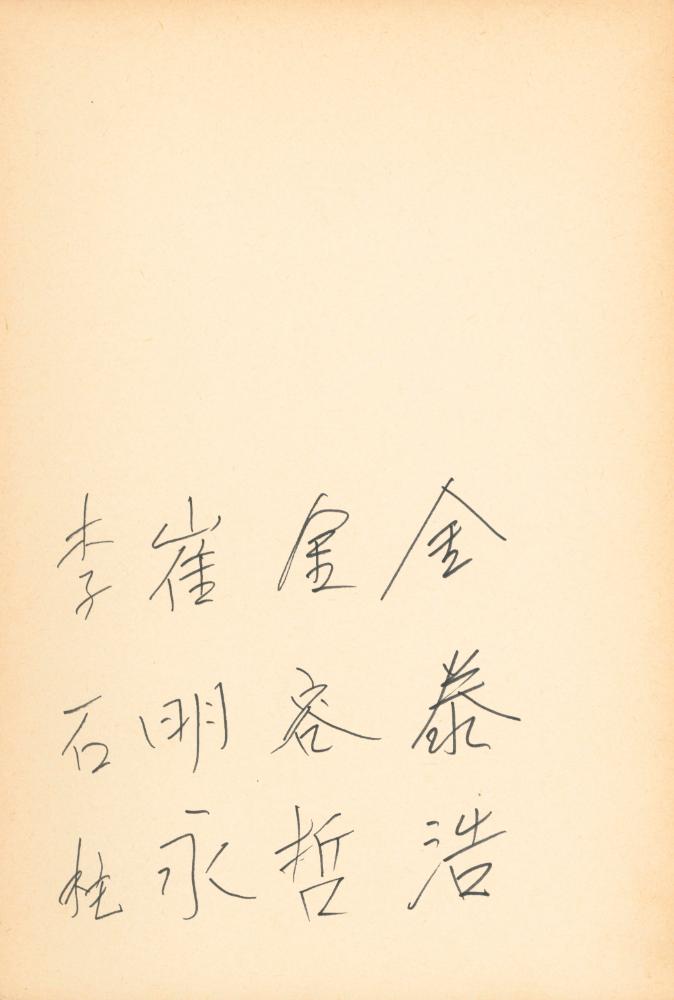 金泰浩
金容哲
崔明永
李石柱